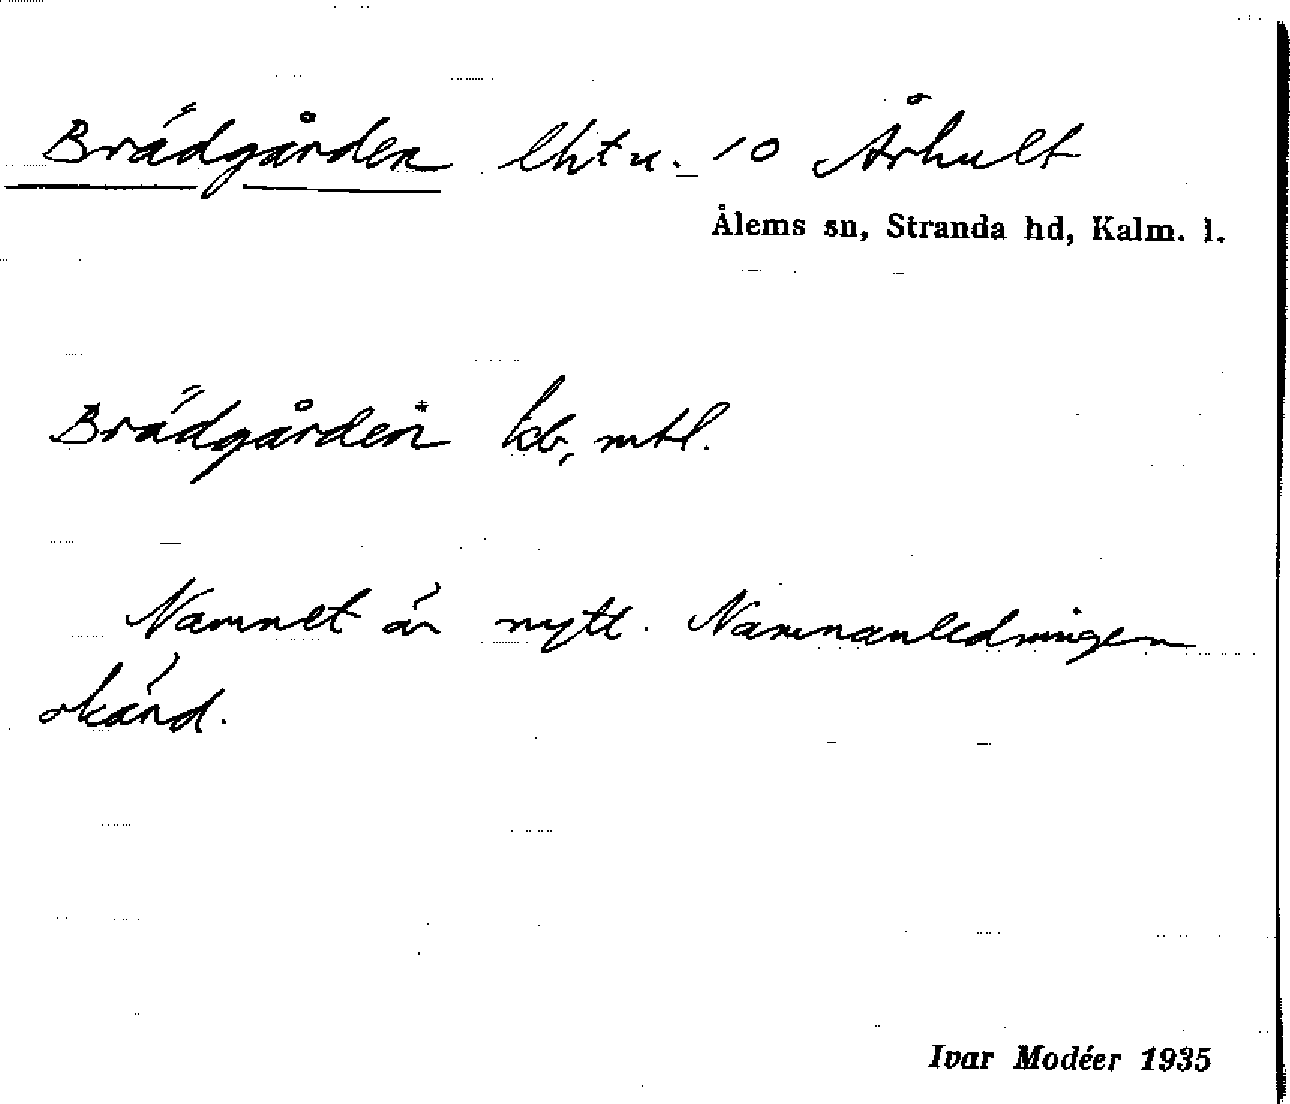 Brädgården lht u. 10 Århult
Ålems sn, Stranda hd, Kalm. l.
Brädgården kb, mtl.
Namnet är nytt. Namnanledningen
okänd.
Ivar Modéer 1935